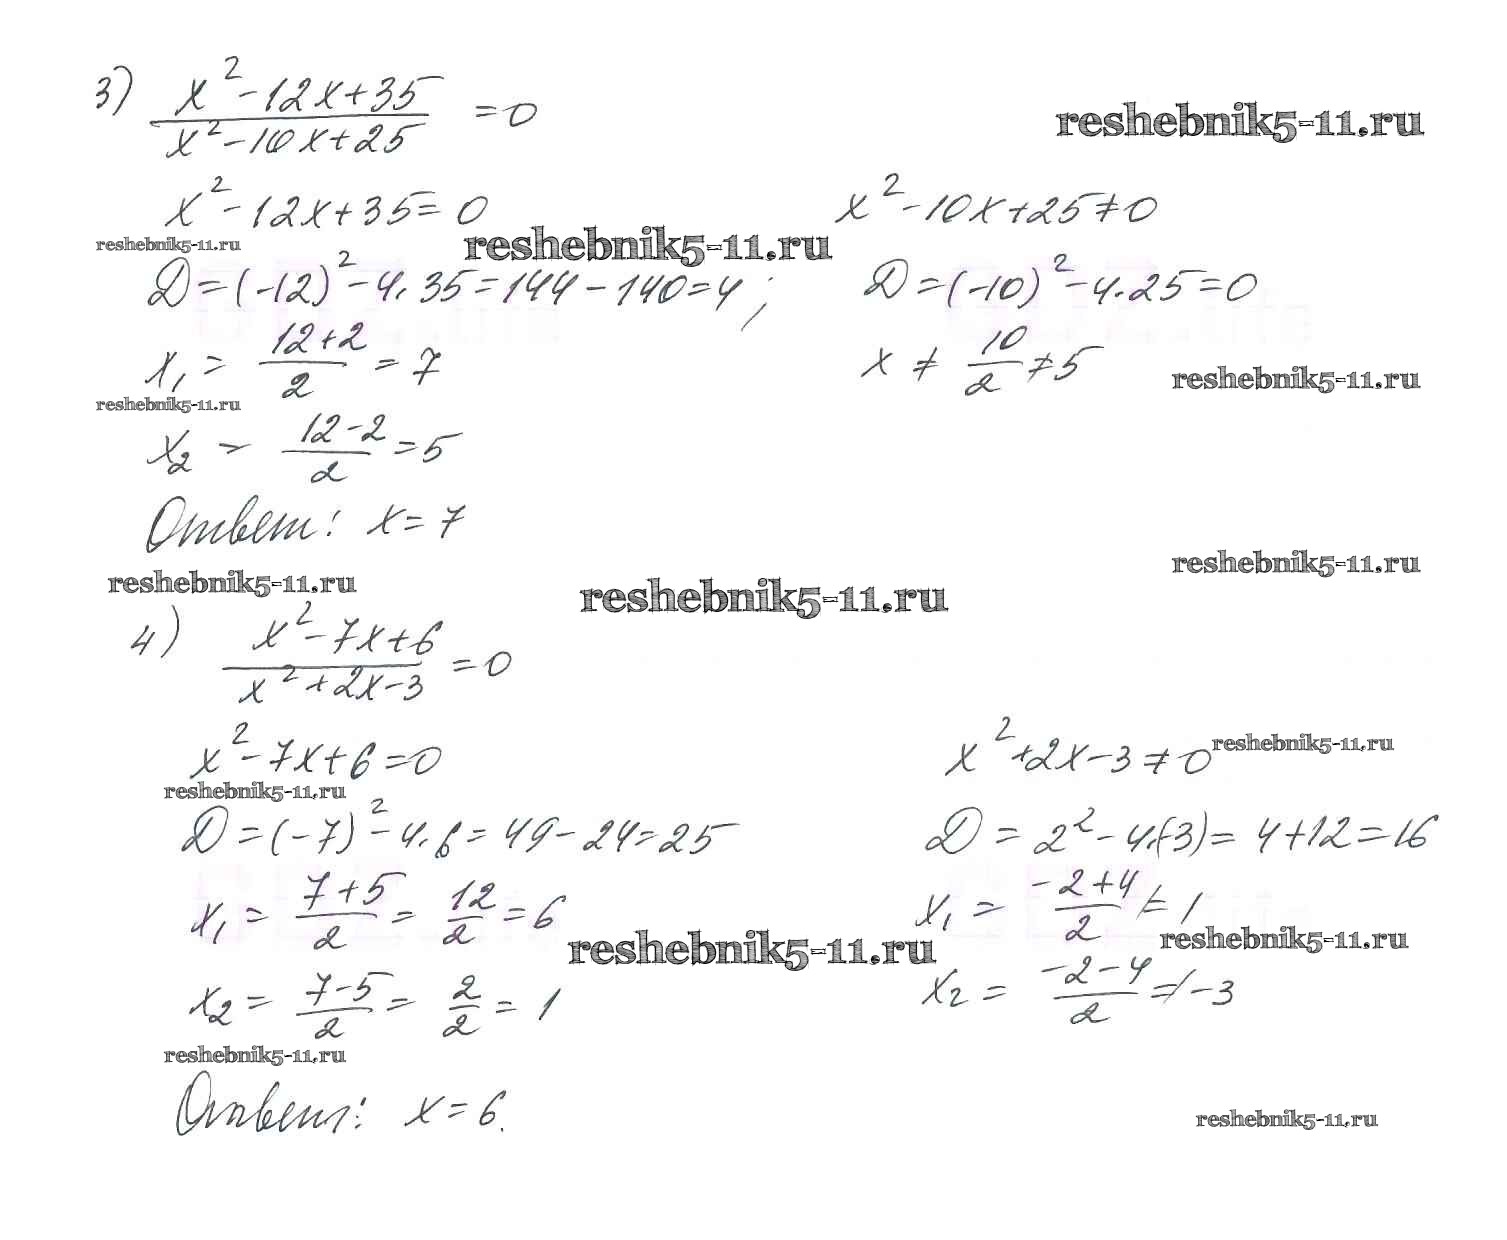 3) (x² - 12x + 35)/(x² - 10x + 25) = 0
reshebnik5-11.ru
x² - 12x + 35 = 0
x² - 10x + 25 ≠ 0
reshebnik5-11.ru
reshebnik5-11.ru
D = (-12)² - 4·35 = 144 - 140 = 4;
D = (-10)² - 4·25 = 0
x₁ = (12+2)/2 = 7
x ≠ 10/2 ≠ 5
reshebnik5-11.ru
reshebnik5-11.ru
x₂ = (12-2)/2 = 5
Ответ: x = 7
reshebnik5-11.ru
reshebnik5-11.ru
reshebnik5-11.ru
4) (x² - 7x + 6)/(x² + 2x - 3) = 0
x² - 7x + 6 = 0
x² + 2x - 3 ≠ 0
reshebnik5-11.ru
reshebnik5-11.ru
D = (-7)² - 4·6 = 49 - 24 = 25
D = 2² - 4·(-3) = 4 + 12 = 16
x₁ = (7+5)/2 = 12/2 = 6
x₁ = (-2+4)/2 ≠ 1
reshebnik5-11.ru
reshebnik5-11.ru
x₂ = (7-5)/2 = 2/2 = 1
x₂ = (-2-4)/2 ≠ -3
reshebnik5-11.ru
Ответ: x = 6.
reshebnik5-11.ru